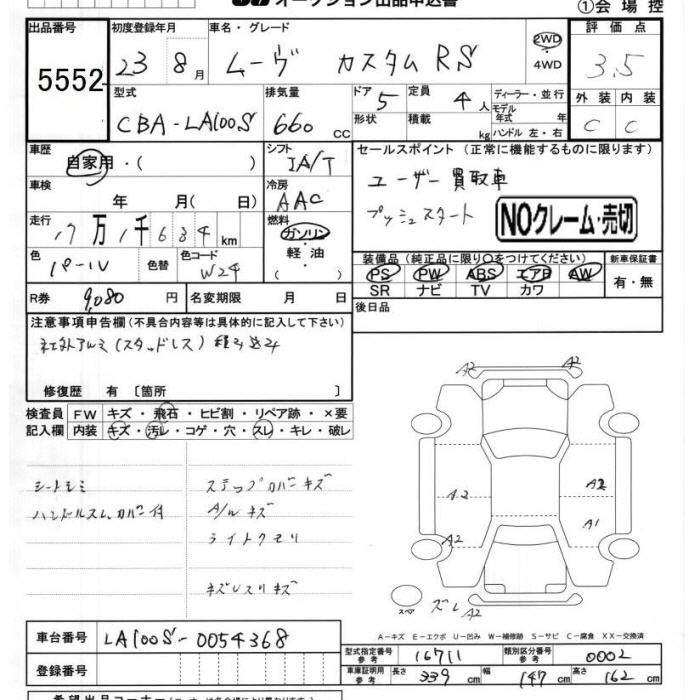 オークション出品申込書
①会場控
出品番号
5552
初度登録年月
23 8月
車名・グレード
ムーヴ カスタム RS
2WD
4WD
評価点
3.5
型式
CBA-LA100S
排気量
660 cc
ドア 5
形状
定員 4人
積載 kg
ディーラー・並行
モデル年式 年
ハンドル 左・右
外装 内装
C C
車歴
自家用・( )
シフト
IA/T
セールスポイント (正常に機能するものに限ります)
ユーザー買取車
プッシュスタート
NOクレーム・売切
車検
年 月( 日)
冷房
AAC
走行
17万1千634km
燃料
ガソリン
軽・油
( )
色
パール
色替
色コード
W24
装備品 (純正品に限り○をつけてください) 新車保証書
PS PW ABS エアB AW
SR ナビ TV カワ
有・無
R券 9,080 円
名変期限 月 日
後日品
注意事項申告欄(不具合内容等は具体的に記入して下さい)
社外アルミ(スタッドレス)積み込み
修復歴 有 〔箇所 〕
検査員記入欄
FW キズ・飛石・ヒビ割・リペア跡・×要
内装 キズ・汚レ・コゲ・穴・スレ・キレ・破レ
シートシミ
ハンドルスレ、カバー付
ステップカバーキズ
A/Wキズ
ライトクモリ
A2 A2
A2 A2
A1
A2
スペア
ズレ A2
A-キズ E-エクボ U-凹み W-補修跡 S-サビ C-腐食 XX-交換済
車台番号 LA100S-0054368
登録番号
型式指定番号 参考 16711
類別区分番号 参考 0002
車庫証明用 参考 長さ 339 cm 幅 147 cm 高さ 162 cm